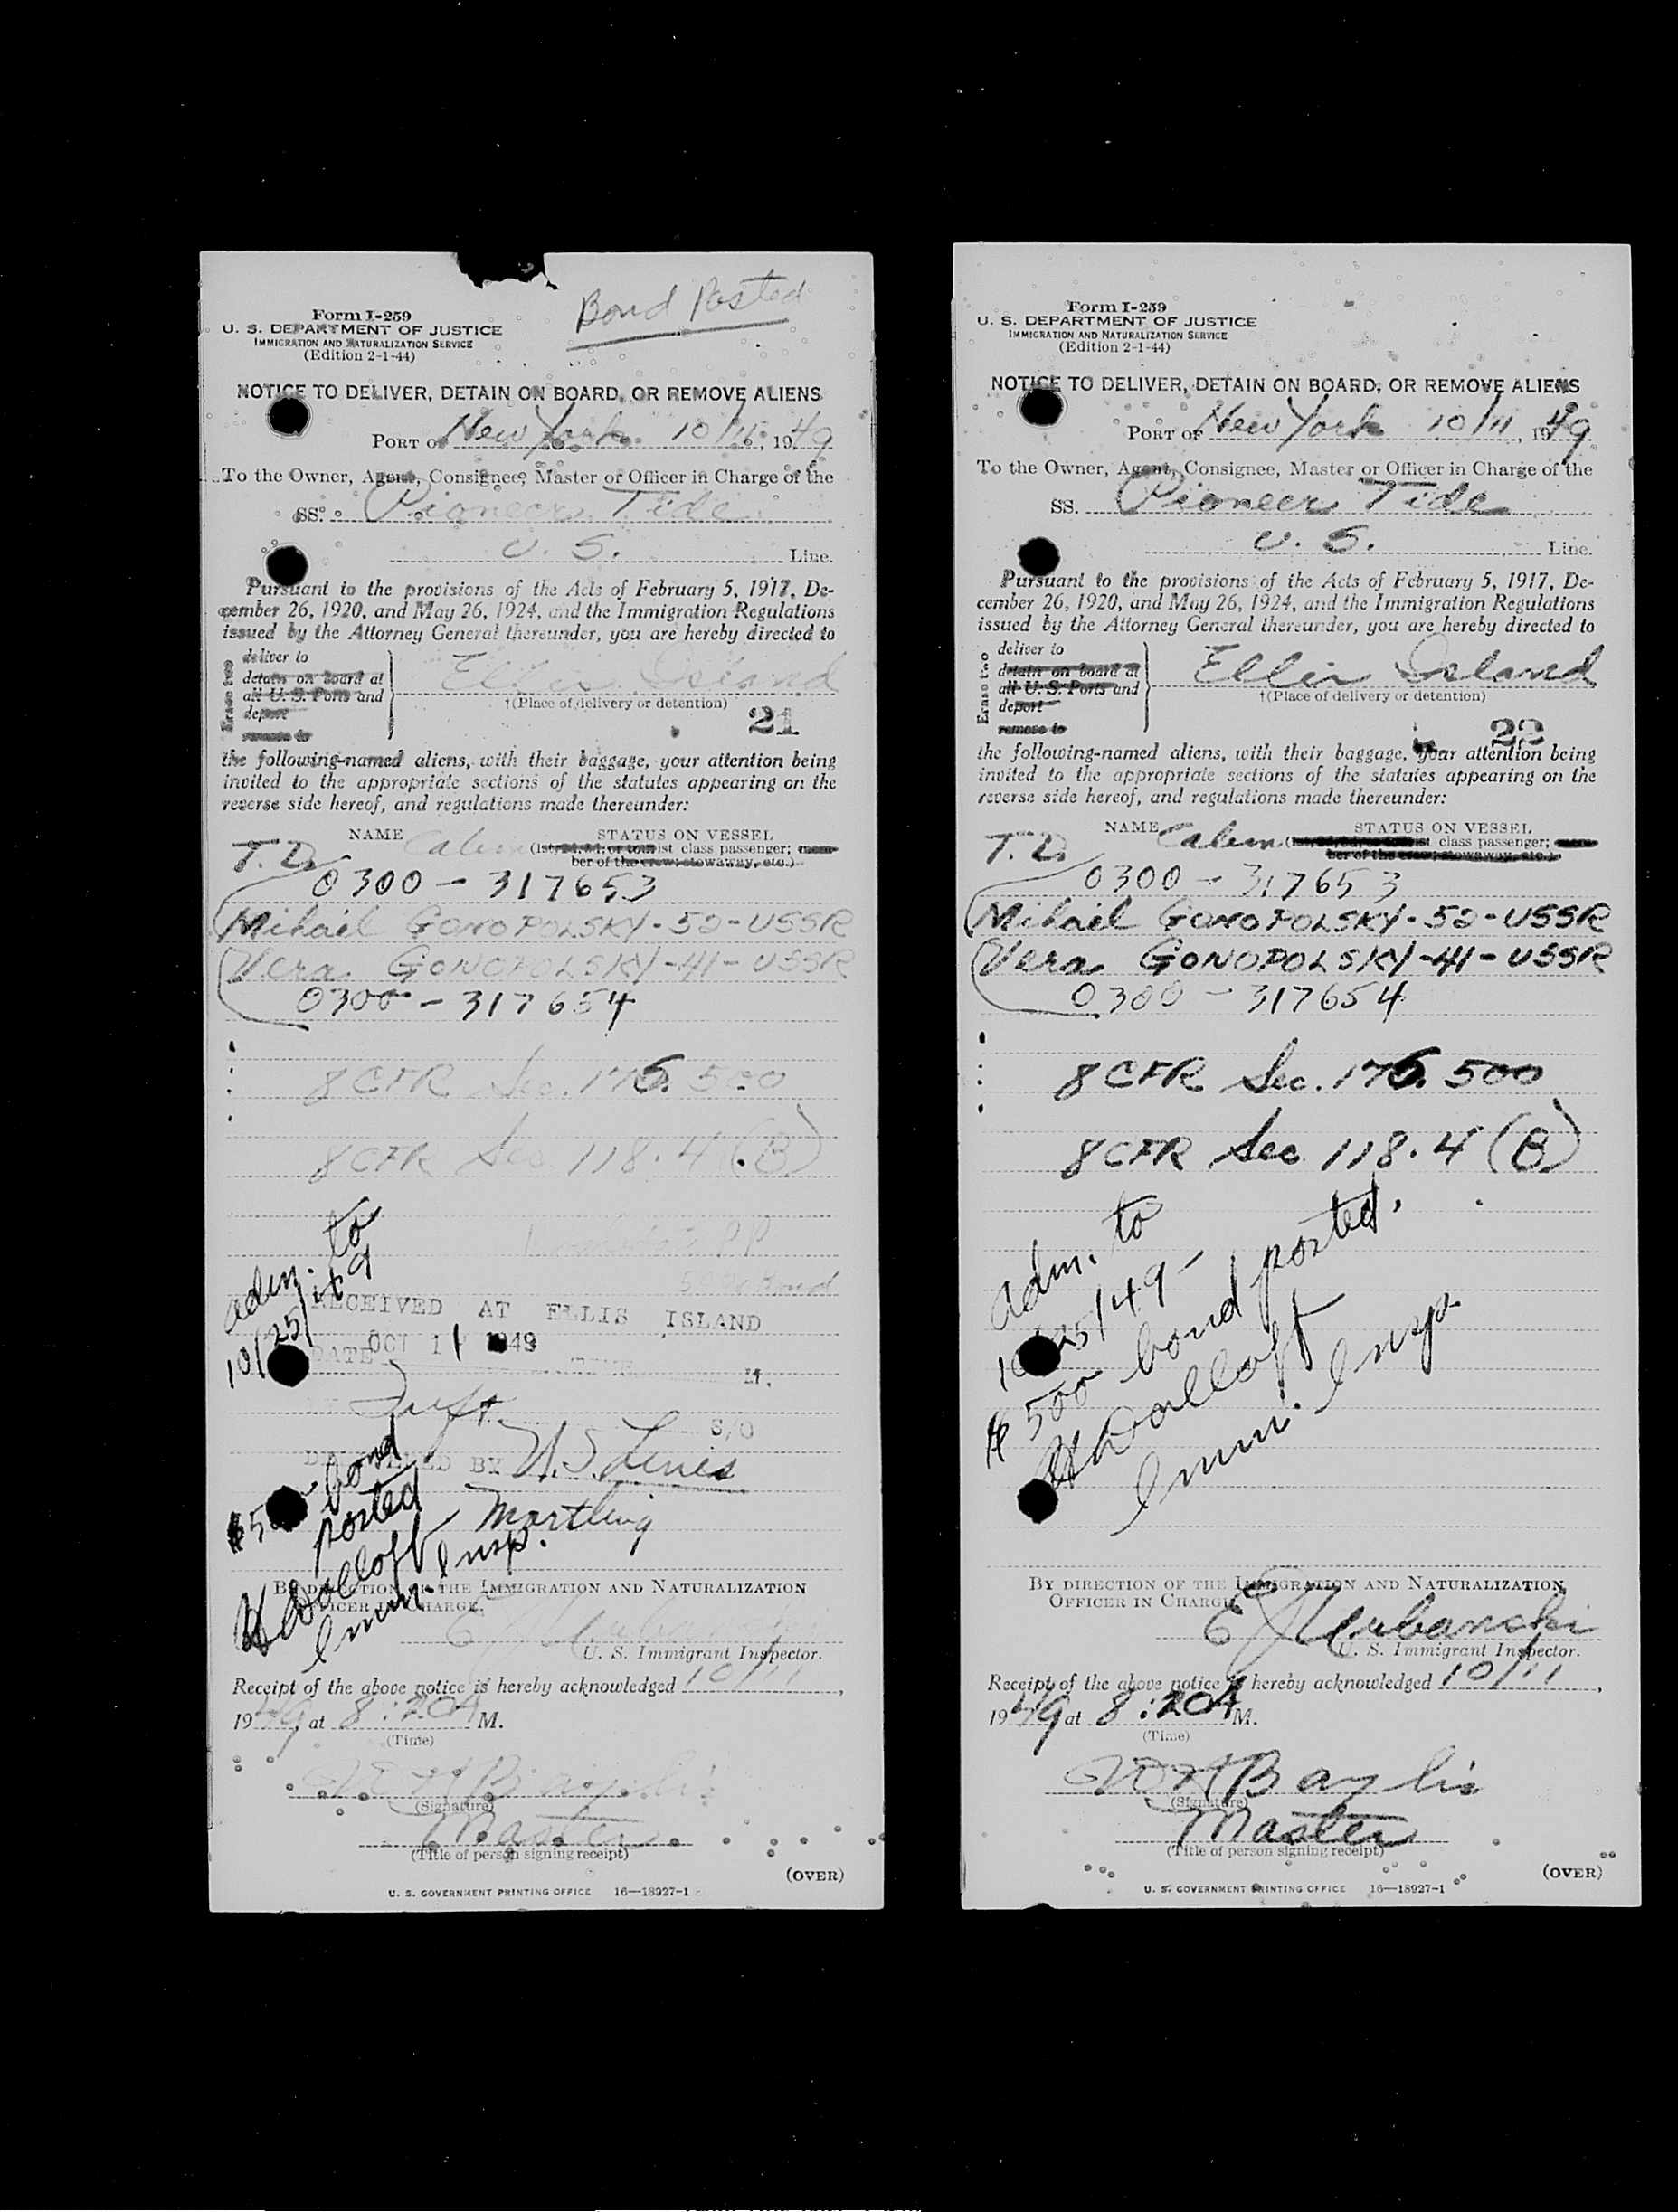 Bond Posted
Form I-259
U. S. DEPARTMENT OF JUSTICE
IMMIGRATION AND NATURALIZATION SERVICE
(Edition 2-1-44)
NOTICE TO DELIVER, DETAIN ON BOARD, OR REMOVE ALIENS
PORT OF New York 10/11, 1949
To the Owner, Agent, Consignee, Master or Officer in Charge of the
SS. Pioneer Tide
U. S. Line.
Pursuant to the provisions of the Acts of February 5, 1917, De-
cember 26, 1920, and May 26, 1924, and the Immigration Regulations
issued by the Attorney General thereunder, you are hereby directed to
Erase two
deliver to
detain on board at
all U. S. Ports and
deport
remove to
Ellis Island
†(Place of delivery or detention)
21
the following-named aliens, with their baggage, your attention being
invited to the appropriate sections of the statutes appearing on the
reverse side hereof, and regulations made thereunder:
NAME Cabin STATUS ON VESSEL
T. D. (1st, 2d, 3d, or tourist class passenger; mem-
ber of the crew; stowaway, etc.)
0300 - 317653
Mihail GONOPOLSKY - 52 - USSR
Vera GONOPOLSKY - 41 - USSR
0300 - 317654
8 CFR Sec. 176.500
8 CFR Sec 118.4 (B)
adm. to
10/25/49
RECEIVED AT ELLIS ISLAND
DATE OCT 11 1949
TIME M.
S/O
DELIVERED BY U.S. Lines
Martling
$500 bond
posted
Imm. Insp.
BY DIRECTION OF THE IMMIGRATION AND NATURALIZATION
OFFICER IN CHARGE.
E J Urbanski
U. S. Immigrant Inspector.
Receipt of the above notice is hereby acknowledged 10/11,
1949 at 8:20 A M.
(Time)
Baylis
(Signature)
Master
(Title of person signing receipt)
(OVER)
U. S. GOVERNMENT PRINTING OFFICE 16—18927-1
Form I-259
U. S. DEPARTMENT OF JUSTICE
IMMIGRATION AND NATURALIZATION SERVICE
(Edition 2-1-44)
NOTICE TO DELIVER, DETAIN ON BOARD, OR REMOVE ALIENS
PORT OF New York 10/11, 1949
To the Owner, Agent, Consignee, Master or Officer in Charge of the
SS. Pioneer Tide
U. S. Line.
Pursuant to the provisions of the Acts of February 5, 1917, De-
cember 26, 1920, and May 26, 1924, and the Immigration Regulations
issued by the Attorney General thereunder, you are hereby directed to
Erase two
deliver to
detain on board at
all U. S. Ports and
deport
remove to
Ellis Island
†(Place of delivery or detention)
22
the following-named aliens, with their baggage, your attention being
invited to the appropriate sections of the statutes appearing on the
reverse side hereof, and regulations made thereunder:
NAME Cabin STATUS ON VESSEL
T. D. (1st, 2d, 3d, or tourist class passenger; mem-
ber of the crew; stowaway, etc.)
0300 - 317653
Mihail GONOPOLSKY - 52 - USSR
Vera GONOPOLSKY - 41 - USSR
0300 - 317654
8 CFR Sec. 176.500
8 CFR Sec 118.4 (B)
adm. to
10/25/49 -
$500 bond posted.
Imm. Insp
BY DIRECTION OF THE IMMIGRATION AND NATURALIZATION
OFFICER IN CHARGE.
E J Urbanski
U. S. Immigrant Inspector.
Receipt of the above notice is hereby acknowledged 10/11,
1949 at 8:20 A M.
(Time)
Baylis
(Signature)
Master
(Title of person signing receipt)
(OVER)
U. S. GOVERNMENT PRINTING OFFICE 16—18927-1